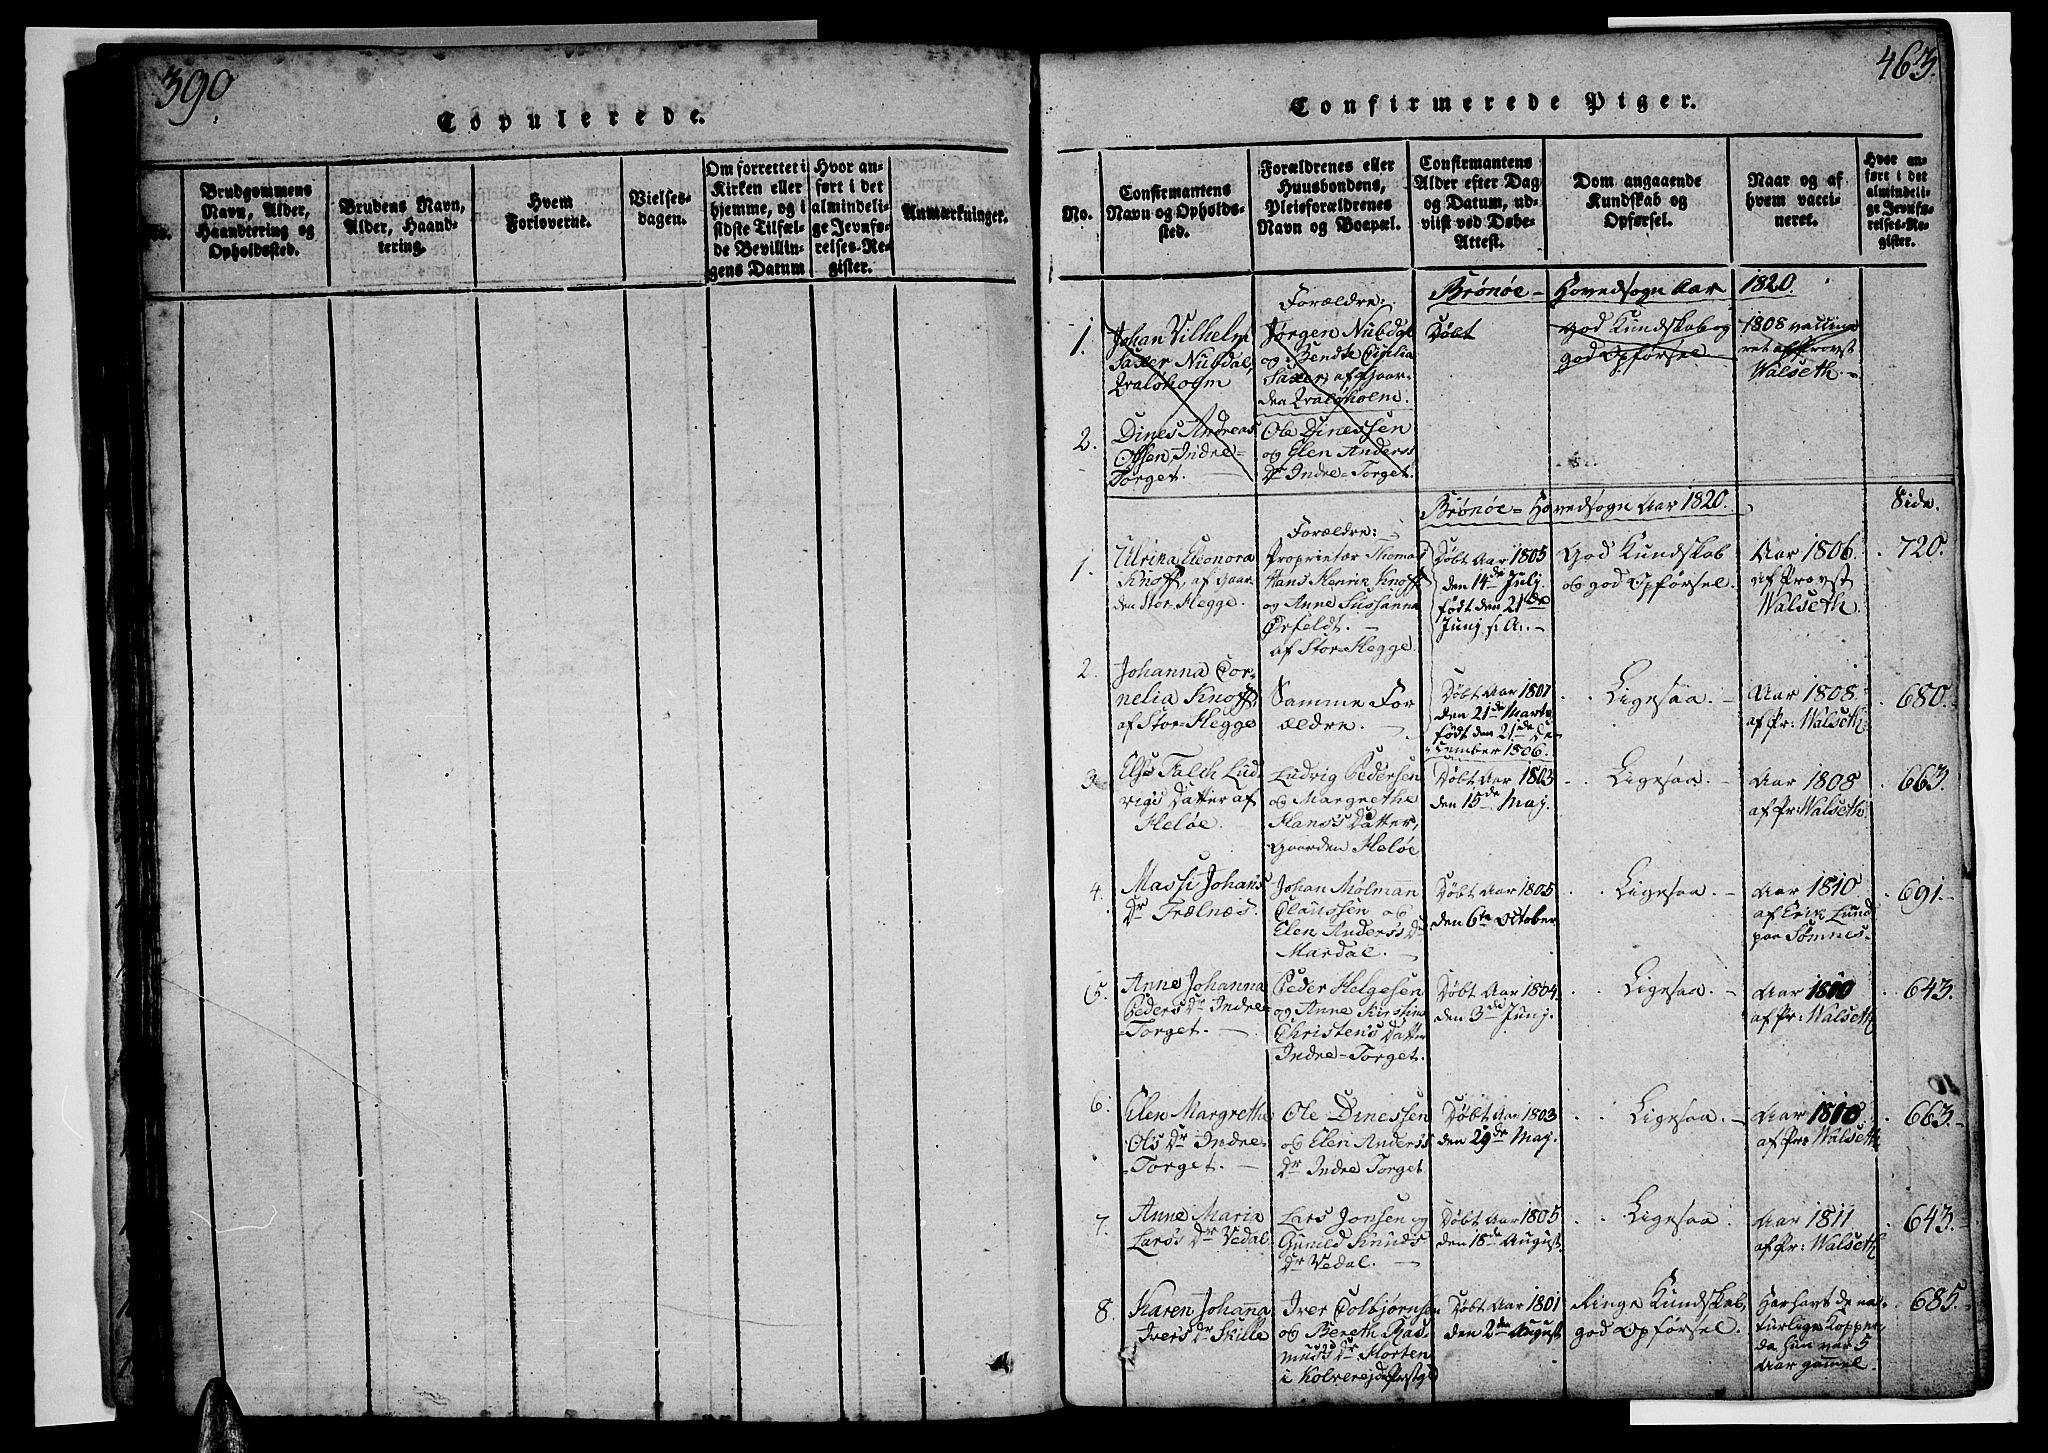 390.
Copulerede.
No.
Brudgommens
Navn, Alder,
Haandtering og
Opholdssted.
Brudens Navn,
Alder, Haand-
tering.
Hvem
Forloverne.
Vielses-
dagen.
Om forrettet i
Kirken eller
hjemme, og i
sidste Tilfæl-
de Bevillin-
gens Datum
Hvor an-
ført i det
almindeli-
ge Jevnfø-
relses-Re-
gister.
Anmærkninger.
463.
Confirmerede Piger.
No.
Confirmantens
Navn og Opholds-
sted.
Forældrenes eller
Huusbondens,
Pleieforældrenes
Navn og Boepæl.
Confirmantens
Alder efter Dag
og Datum, ud-
viist ved Døbe-
Attest.
Dom angaaende
Kundskab og
Opførsel.
Naar og af
hvem vacci-
neret.
Hvor an-
ført i det
almindeli-
ge Jevnfø-
relses-Re-
gister.
Brönöe-Hovedsogn Aar 1820.
1.
Johan Vilhelm
Saxer Nubdal,
Qvaløholm
Forældre:
Jørgen Nubdal
og Bendte Cicilia
Saxer, af Gaar-
den Qvaløholm.
Døbt
god Kundskab og
god Opførsel.
1808 vaccine-
ret af Provst
Walseth.-
2.
Dines Andreas
Olsen, Indre-
Torget.
Ole Dinessen
og Elen Anders
Dr Indre-Torget.
Brönöe-Hovedsogn Aar 1820.
Side.
1.
Ulrina Eleonora
Knoff, af Gaar-
den Stor-Hegge.
Forældre:
Proprietær Thomas
Hans Henrik Knoff
og Anne Sussanna
Ørfeldt. -
af Stor-Hegge.
Døbt Aar 1805
den 14de Julj.
født den 21de
Junj s: A. -
God Kundskab
og god Opførsel.
Aar 1806.
af Provst
Walseth.
720.
2.
Johanna Cor-
nelia Knoff,
af Stor-Hegge
Samme For-
ældre. -
Døbt Aar 1807
den 21de Marts
født den 21de De-
cember 1806.
Ligesaa. -
Aar 1808.
af Pr: Walseth.
680.
3.
Else Falch Lud-
vigs Datter af
Heløe.
Ludvig Pedersen
og Margrethe
Hans Datter,
Gaarden Heløe
Døbt Aar 1803
den 15de Maj.
Ligesaa. -
Aar 1808
af Pr: Walseth.
663.
4.
Massi Johans
Dr Trælnæs.
Johan Mølmann
Claussen og
Elen Anders Dr
Mardal. -
Døbt Aar 1805
den 6te October
Ligesaa. -
Aar 1810
af Erik Lund
paa Sømnes.
691.
5.
Anne Johanna
Peders Dr Indre-
-Torget. -
Peder Helgesen
og Anne Kirstine
Christens Datter
Indre-Torget.
Døbt Aar 1804.
den 3de Junj.
Ligesaa. -
Aar 1810
af Pr: Walseth
643.
6.
Elen Margrethe
Ols Dr Indre-
-Torget. -
Ole Dinessen
og Elen Anders
Dr Indre Torget
Døbt Aar 1803
den 29de Maj.
Ligesaa. -
Aar 1810.
af Pr: Walseth
663.
7.
Anne Maria
Lars Dr Vedal.
Lars Jonsen og
Gunild Knuds
Dr Vedal. -
Døbt Aar 1805.
den 18de August.
Ligesaa.
Aar 1811
af Pr: Walseth
643.
8.
Karen Johanna
Ivers Dr Skille
Iver Colbjørnsen
og Bereth Ras-
mus Dr Horten
i Kolvereid Prstgld
Døbt Aar 1801
den 2den August
Ringe Kundskab,
god Opførsel.
Har havt de na-
turlige Kopper,
da hun var 5
Aar gammel.
685.